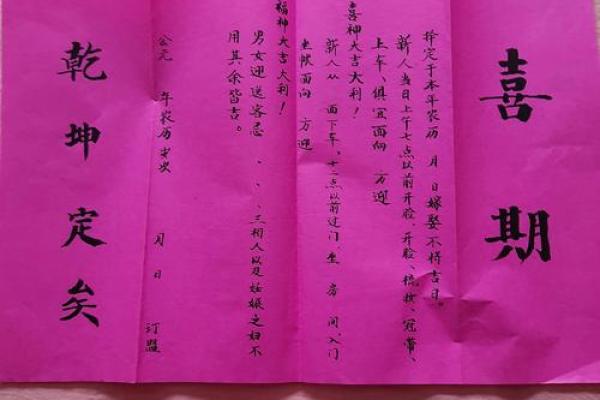 喜期
择定于本年农历 月 日嫁娶不得吉日。
新人当日上午七点以前开脸、开脸、梳妆、冠带、
上车、俱宜面向 方迎
喜神大吉大利！
新人从 面下车、十二点以前过门、坐 房 间、入门
坐帐面向 方迎
福神大吉大利！
男女迎送客忌 、 、 、三相人以及妊娠之妇不
用其余皆吉。
公元 年农历岁次 月 日 订盟
乾坤定矣